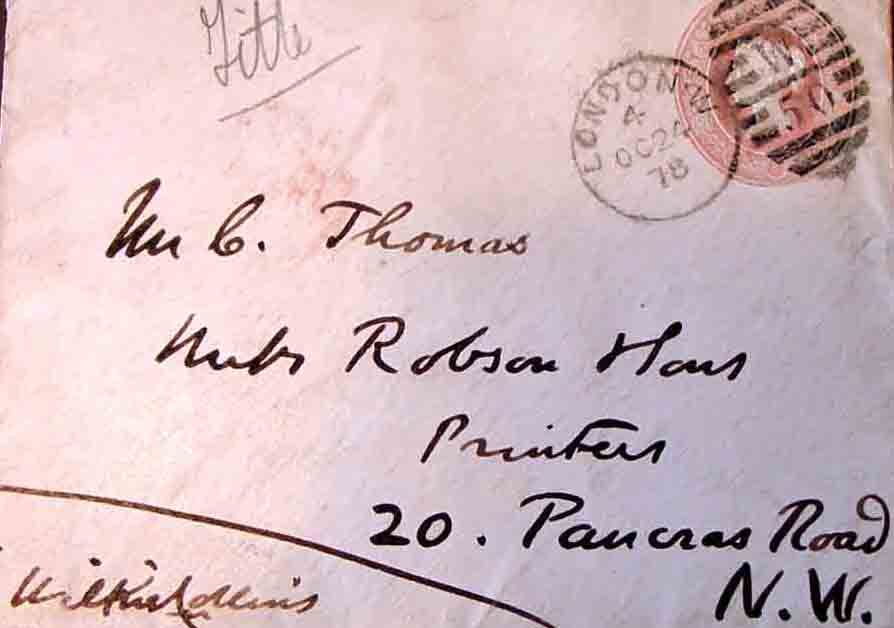 Title
LONDON N.W
4
OC24
78
Mr C. Thomas
Messrs Robson & Sons
Printers
20. Pancras Road
N.W.
Wilkie Collins